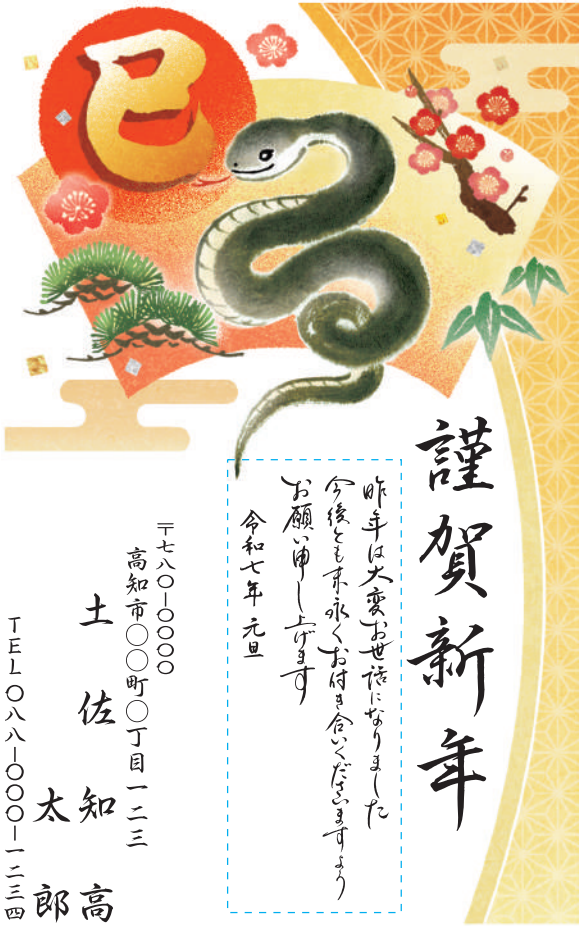 巳
謹賀新年
昨年は大変お世話になりました
今後とも末永くお付き合いくださいますよう
お願い申し上げます
令和七年 元旦
〒七八〇-〇〇〇〇
高知市〇〇町〇丁目一二三
土佐知高
太郎
TEL〇八八-〇〇〇-一二三四